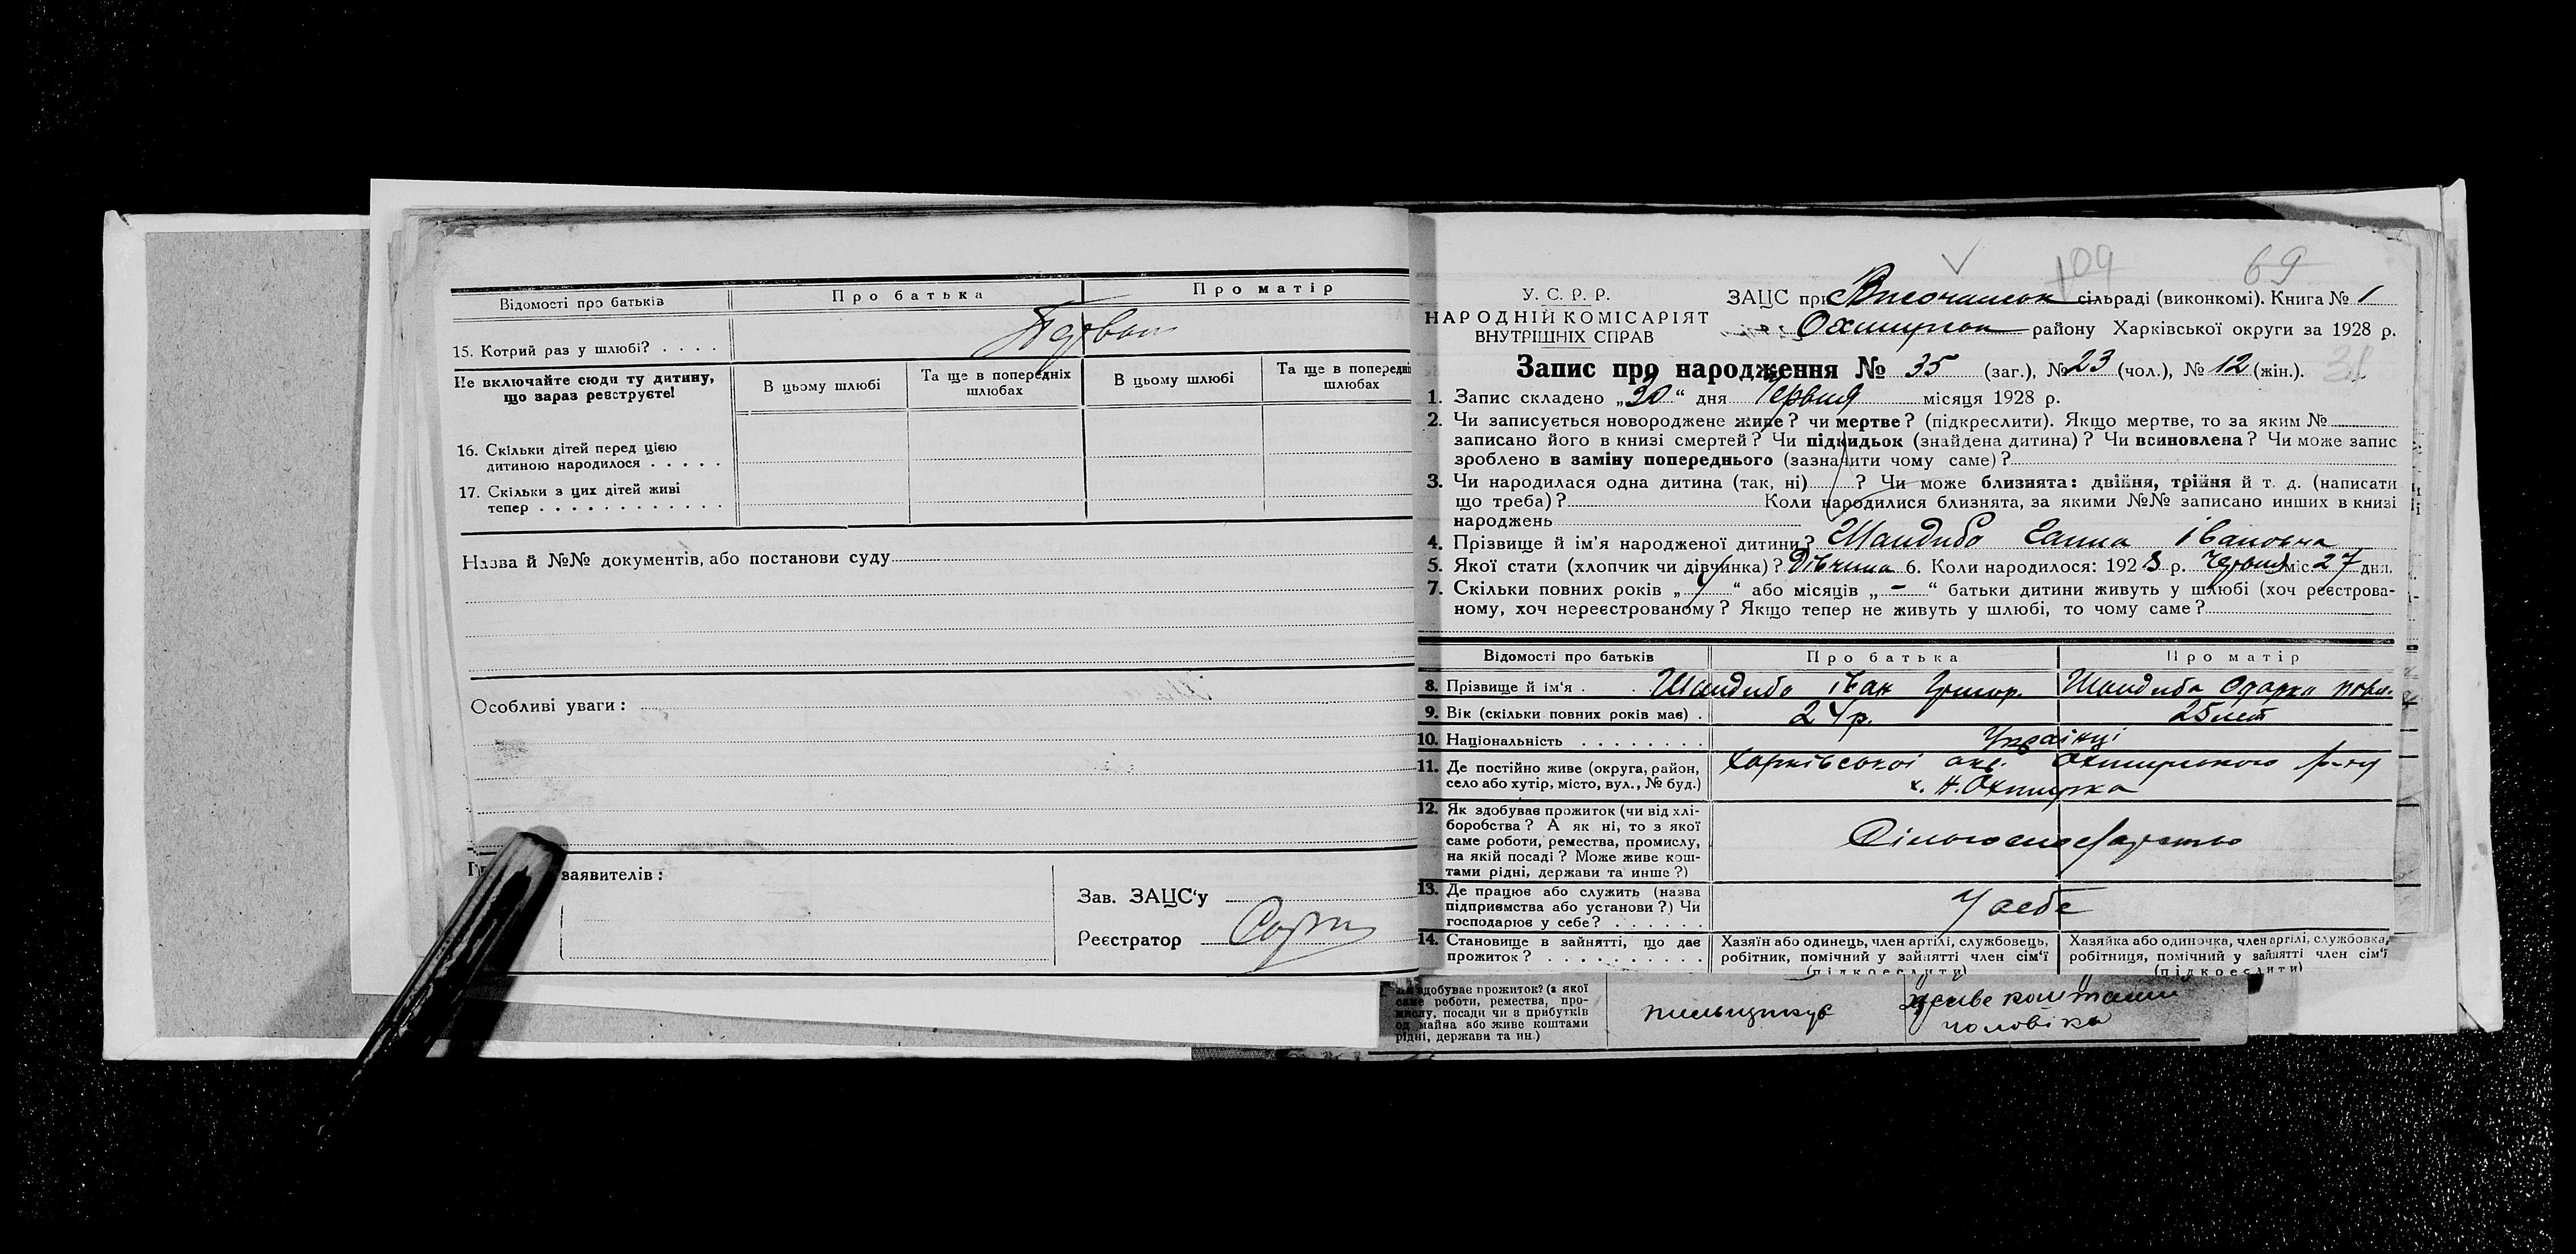 Відомості про батьків
Про батька
Про матір
15. Котрий раз у шлюбі? . . . .
Не включайте сюди ту дитину,
що зараз реєструєте!
В цьому шлюбі
Та ще в попередніх
шлюбах
В цьому шлюбі
Та ще в попередні
шлюбах
16. Скільки дітей перед цією
дитиною народилося . . . . .
17. Скільки з цих дітей живі
тепер . . . . . . . . . . . .
Назва й №№ документів, або постанови суду
Особливі уваги :
заявителів :
Зав. ЗАЦС‘у
Реєстратор
109 69
У. С. Р. Р.
НАРОДНІЙ КОМІСАРІЯТ
ВНУТРІШНІХ СПРАВ
ЗАЦС при сільраді (виконкомі). Книга № 1
району Харківської округи за 1928 р.
Запис про народження № 35 (заг.), № 23 (чол.), № 12 (жін.).
1. Запис складено „30“ дня Червня місяця 1928 р.
2. Чи записується новороджене живе? чи мертве? (підкреслити). Якщо мертве, то за яким №
записано його в книзі смертей? Чи підкидьок (знайдена дитина)? Чи всиновлена? Чи може запис
зроблено в заміну попереднього (зазначити чому саме)?
3. Чи народилася одна дитина (так, ні) ? Чи може близнята: двійня, трійня й т. д. (написати
що треба)? Коли народилися близнята, за якими №№ записано инших в книзі
народжень
4. Прізвище й ім’я народженої дитини? Шандиба Ганна Івановна
5. Якої стати (хлопчик чи дівчинка)? Дівчина 6. Коли народилося: 1928 р. Червня міс 27 дня.
7. Скільки повних років „ “ або місяців „ – “ батьки дитини живуть у шлюбі (хоч реєстрова-
ному, хоч нереєстрованому? Якщо тепер не живуть у шлюбі, то чому саме?
Відомості про батьків
Про батька
Про матір
8. Прізвище й ім‘я . . Шандиба Іван Григор. Шандиба Одарка Павл.
9. Вік (скільки повних років має) . 24 р. 25 лет
10. Національність . . . . . . . . Українці
11. Де постійно живе (округа, район,
село або хутір, місто, вул., № буд.)
Харківської окр. Охтирського р-ну
х. Н. Охтирка
12. Як здобуває прожиток (чи від хлі-
боробства? А як ні, то з якої
саме роботи, ремества, промислу,
на якій посаді? Може живе кош-
тами рідні, держави та инше?)
13. Де працює або служить (назва
підприємства або установи?) Чи
господарює у себе? . . . . . .
У себе
14. Становище в зайнятті, що дає
прожиток? . . . . . . . . . .
Хазяїн або одинець, член артілі, службовець,
робітник, помічний у зайнятті член сім‘ї
(підкреслити)
Хазяйка або одиночка, член артілі, службовка,
робітниця, помічний у зайнятті член сім‘ї
(підкреслити)
здобуває прожиток? (з якої
саме роботи, ремества, про-
мислу, посади чи з прибутків
од майна або живе коштами
рідні, держави та ин.)
живе коштами
чоловіка